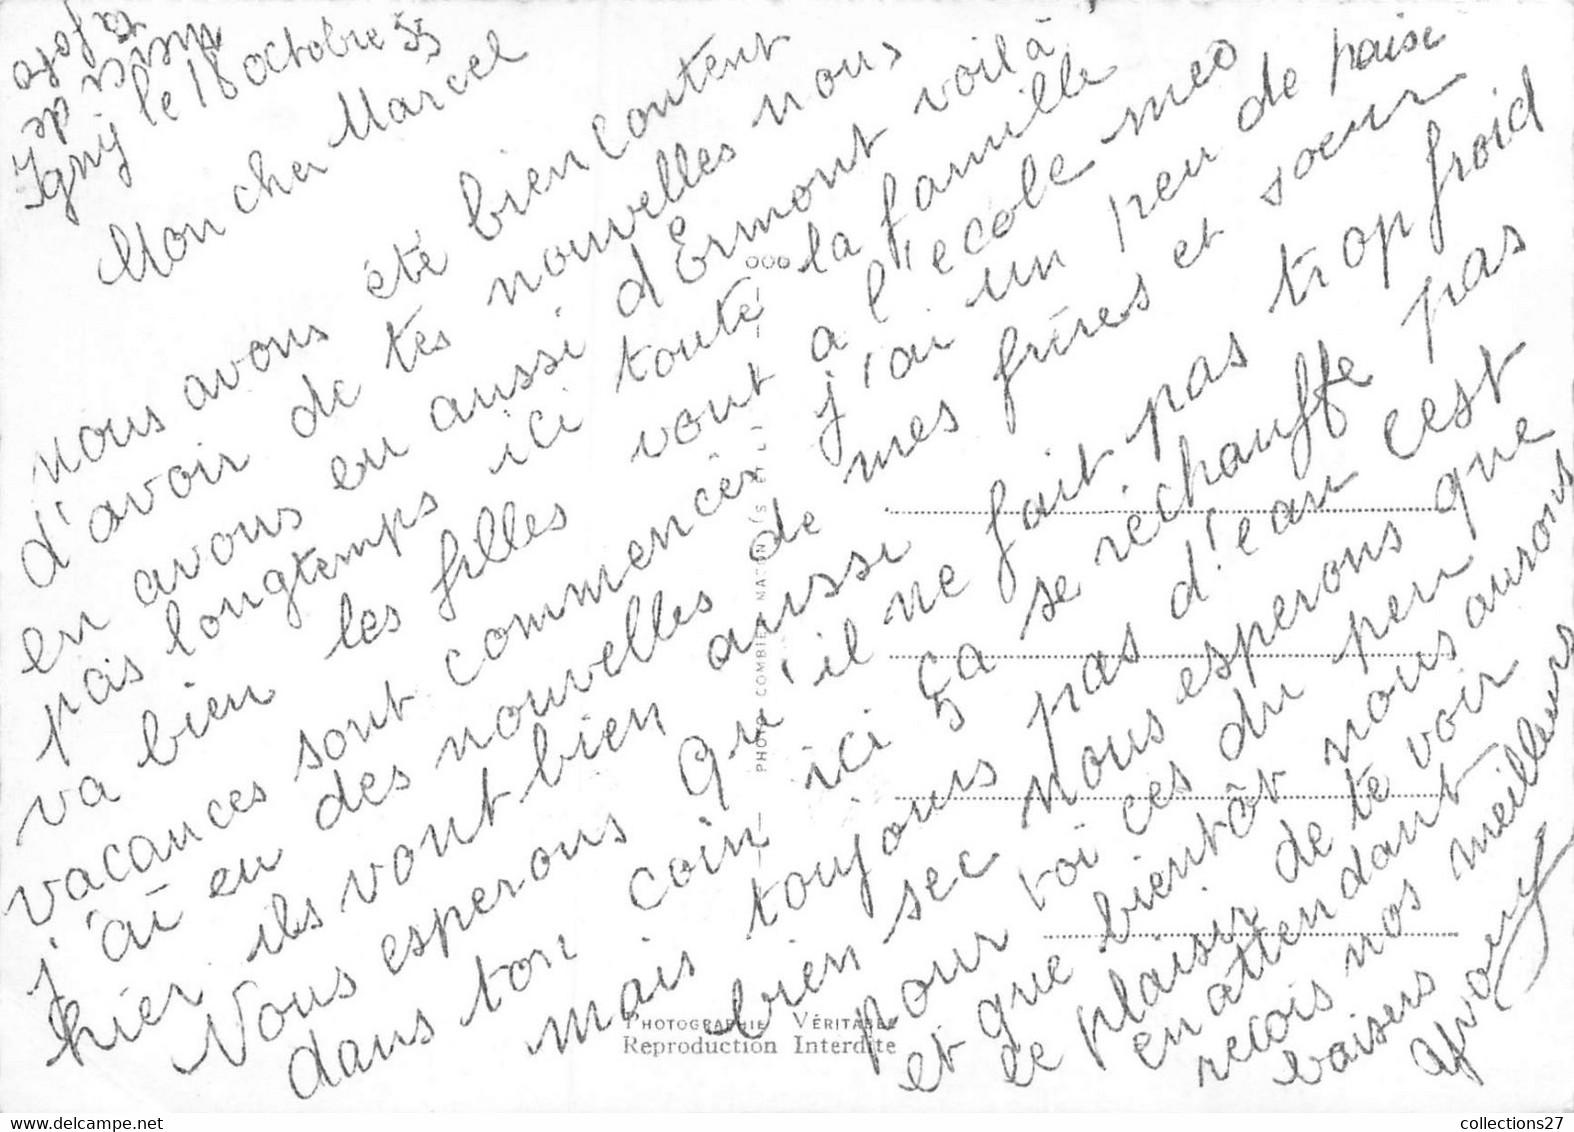 Igny le 18 octobre 55
Mon cher Marcel
nous avons été bien content
d'avoir de tes nouvelles nous
en avons eu aussi d'Ermont voilà
pas longtemps ici toute la famille
va bien les filles vont a l'ecole mes
vacances sont commencés j'ai un peu de
j'ai eu des nouvelles de mes frères et soeur
hier ils vont bien aussi
Nous esperons qu'il ne fait pas trop froid
dans ton coin ici ça se réchauffe pas
mais toujours pas d'eau c'est
bien sec nous esperons que
pour toi ces du peu
et que bientôt nous aurons
le plaisir de te voir
en attendant
recois nos meilleurs
baisers
PHOTO COMBIER MACON (S.-&-L.)
PHOTOGRAPHIE VÉRITABLE
Reproduction Interdite
collections27